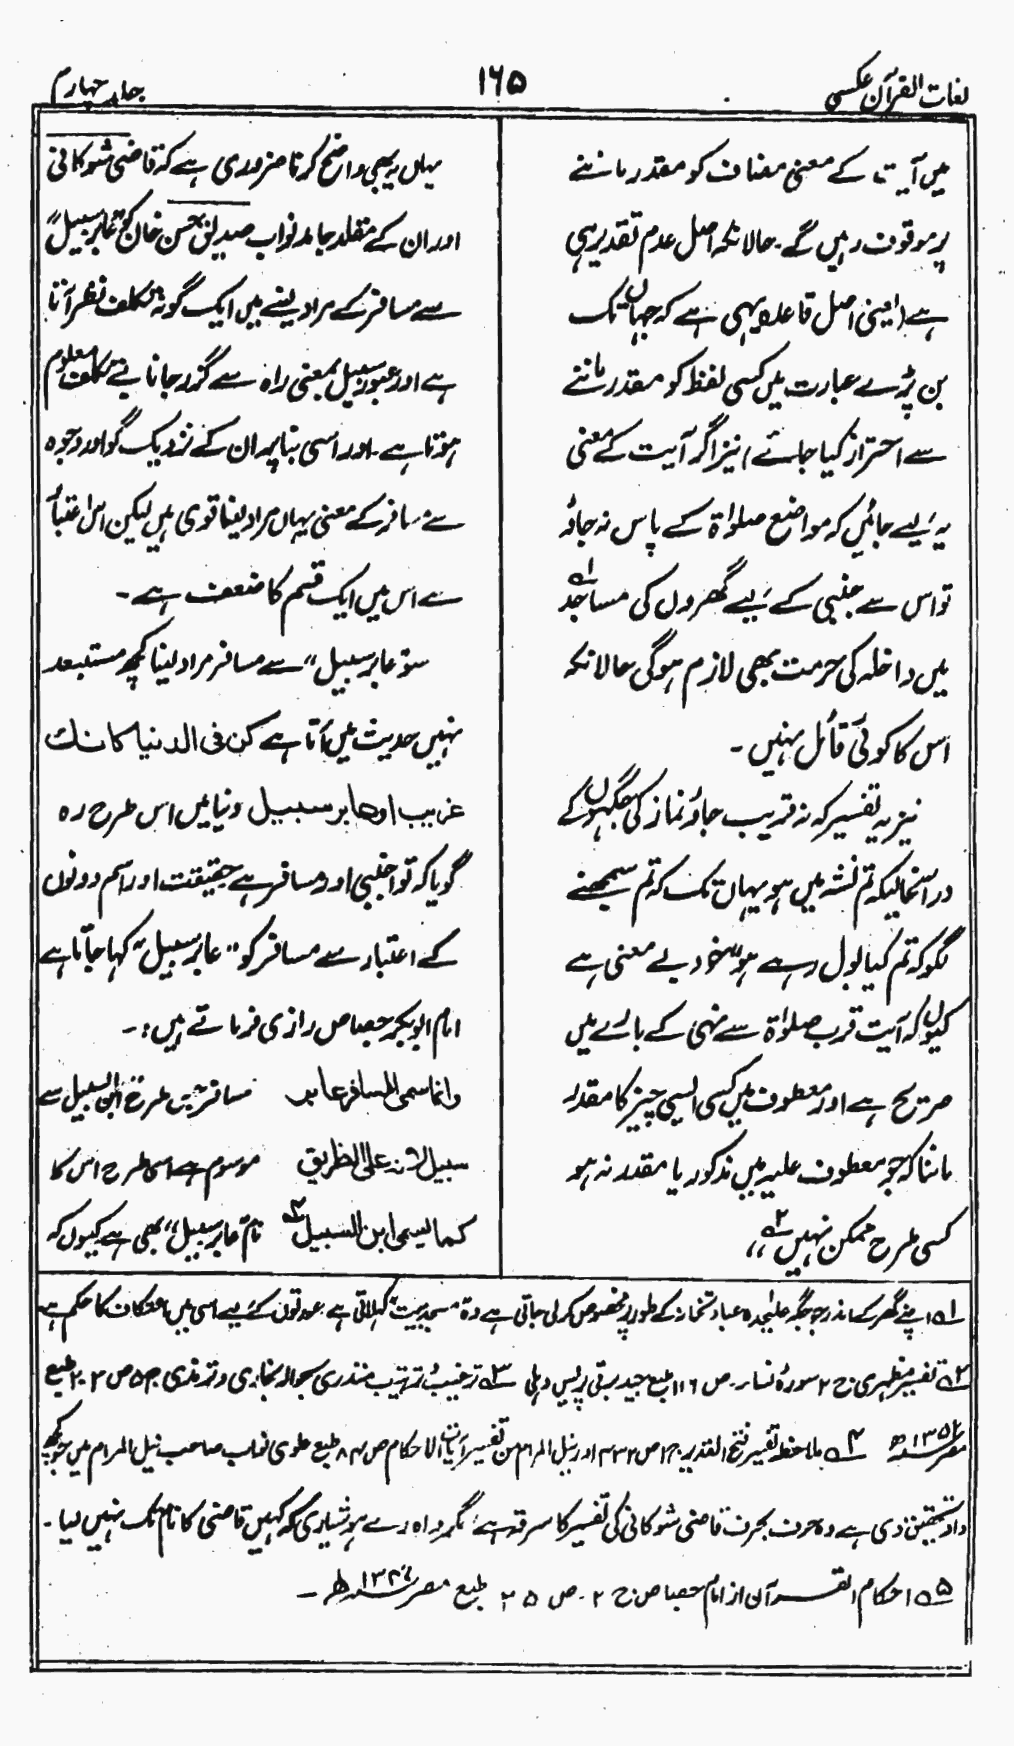 لغات القرآن عکسی
۱۶۵
جلد چہارم
میں آیت کے معنی مضاف کو مقدر ماننے
پر موقوف رہیں گے۔ حالانکہ اصل عدم تقدیر ہی
ہے (یعنی اصل قاعدہ یہی ہے کہ جہاں تک
بن پڑے عبارت میں کسی لفظ کو مقدر ماننے
سے احتراز کیا جائے) نیز اگر آیت کے معنی
یہ لیے جائیں کہ مواضع صلوٰۃ کے پاس نہ جاؤ
تو اس سے جنبی کے لیے گھروں کی مساجد لہ
میں داخلہ کی حرمت بھی لازم ہوگی حالانکہ
اس کا کوئی قائل نہیں ۔
نیز یہ تفسیر کہ نہ قریب جاؤ نماز کی جگہوں کے
درآنحالیکہ تم نشہ میں ہو یہاں تک کہ تم سمجھنے
لگو کہ تم کیا بول رہے ہو" خود بے معنی ہے
کیوں کہ آیت قرب صلوٰۃ سے نہی کے بارے میں
صریح ہے اور معطوف میں کسی ایسی چیز کا مقدر
ماننا کہ جو معطوف علیہ میں مذکور یا مقدر نہ ہو
کسی طرح ممکن نہیں ۲ہ ،،
یہاں یہ بھی واضح کرنا ضروری ہے کہ قاضی شوکانی
اور ان کے مقلد جامد نواب صدیق حسن خان کو "عابر سبیل"
سے مسافر کے مراد لینے میں ایک گونہ تکلف نظر آتا
ہے اور عبور سبیل بمعنی راہ سے گزر جانا بے تکلف معلوم
ہوتا ہے۔ اور اسی بنا پر ان کے نزدیک گو اور وجوہ
سے مسافر کے معنی یہاں مراد لینا قوی ہیں لیکن اس اعتبار
سے اس میں ایک قسم کا ضعف ہے ۔
سو "عابر سبیل" سے مسافر مراد لینا کچھ مستبعد
نہیں حدیث میں آتا ہے کن فی الدنیا کانك
غریب او عابر سبیل دنیا میں اس طرح رہ
گویا کہ تو اجنبی اور مسافر ہے حقیقت اور اسم دونوں
کے اعتبار سے مسافر کو "عابر سبیل" کہا جاتا ہے
امام ابوبکر جصاص رازی فرماتے ہیں :۔
وانما سمی المسافر عابر مسافر جس طرح ابن السبیل سے
سبیل لانه علی الطریق موسوم ہے اسی طرح اس کا
کما یسمی ابن السبیل نام "عابر سبیل" بھی ہے کیوں کہ
لہ اپنے گھر کے اندر جو جگہ علیٰحدہ عبادت نماز کے طور پر مخصوص کر لی جاتی ہے وہ مسجد بیت کہلاتی ہے عورتوں کے لیے اسی میں اعتکاف کا حکم ہے
۲ہ تفسیر مظہری ج ۲ سورۂ نساء۔ ص ۱۱۶ طبع جید برقی پریس دہلی ۳ہ ترغیب و ترہیب منذری بحوالہ بخاری و ترمذی ج ۵ ص ۲۰۲ طبع
مصر ۱۳۵۲ھ ۴ہ ملاحظہ تفسیر فتح القدیر ج ۱ ص ۴۳۲ اور نیل المرام من تفسیر آیات الاحکام ص ۸۴ طبع علوی نواب صاحب نیل المرام میں جو کچھ
داد تحقیق دی ہے وہ حرف بحرف قاضی شوکانی کی تفسیر کا سرقہ ہے، مگر واہ رے ہوشیاری کہ کہیں قاضی کا نام تک نہیں لیا ۔
۵ہ احکام القرآن از امام جصاص ج ۲ ۔ ص ۲۵ طبع مصر ھ ۔